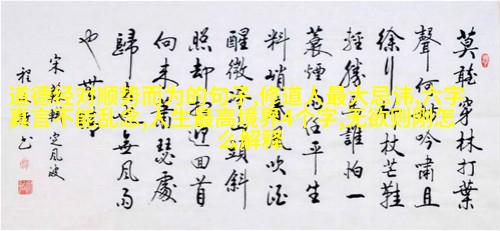 道德经对顺势而为的句子,修道人最大忌讳,六字
真言不能乱念,人生最高境界4个字,无欲则刚怎
么解释
莫聽穿林打葉
聲何妨吟嘯且
徐行竹杖芒鞋
輕勝馬誰怕一
蓑煙雨任平生
料峭春風吹酒
醒微冷山頭斜
照却相迎回首
向來蕭瑟處
歸去也無風雨
也無晴
宋蘇軾定風波
程